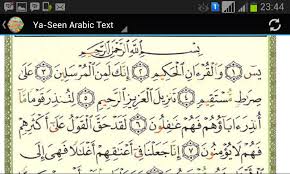 23:44
Ya-Seen Arabic Text
بِسْمِ اللَّهِ الرَّحْمَٰنِ الرَّحِيمِ
يسٓ ﴿١﴾ وَالْقُرْءَانِ الْحَكِيمِ ﴿٢﴾ إِنَّكَ لَمِنَ الْمُرْسَلِينَ ﴿٣﴾ عَلَىٰ
صِرَٰطٍ مُّسْتَقِيمٍ ﴿٤﴾ تَنزِيلَ الْعَزِيزِ الرَّحِيمِ ﴿٥﴾ لِتُنذِرَ قَوْمًا مَّا
أُنذِرَ ءَابَاؤُهُمْ فَهُمْ غَٰفِلُونَ ﴿٦﴾ لَقَدْ حَقَّ الْقَوْلُ عَلَىٰٓ أَكْثَرِهِمْ
فَهُمْ لَا يُؤْمِنُونَ ﴿٧﴾ إِنَّا جَعَلْنَا فِىٓ أَعْنَٰقِهِمْ أَغْلَٰلًا فَهِىَ إِلَى